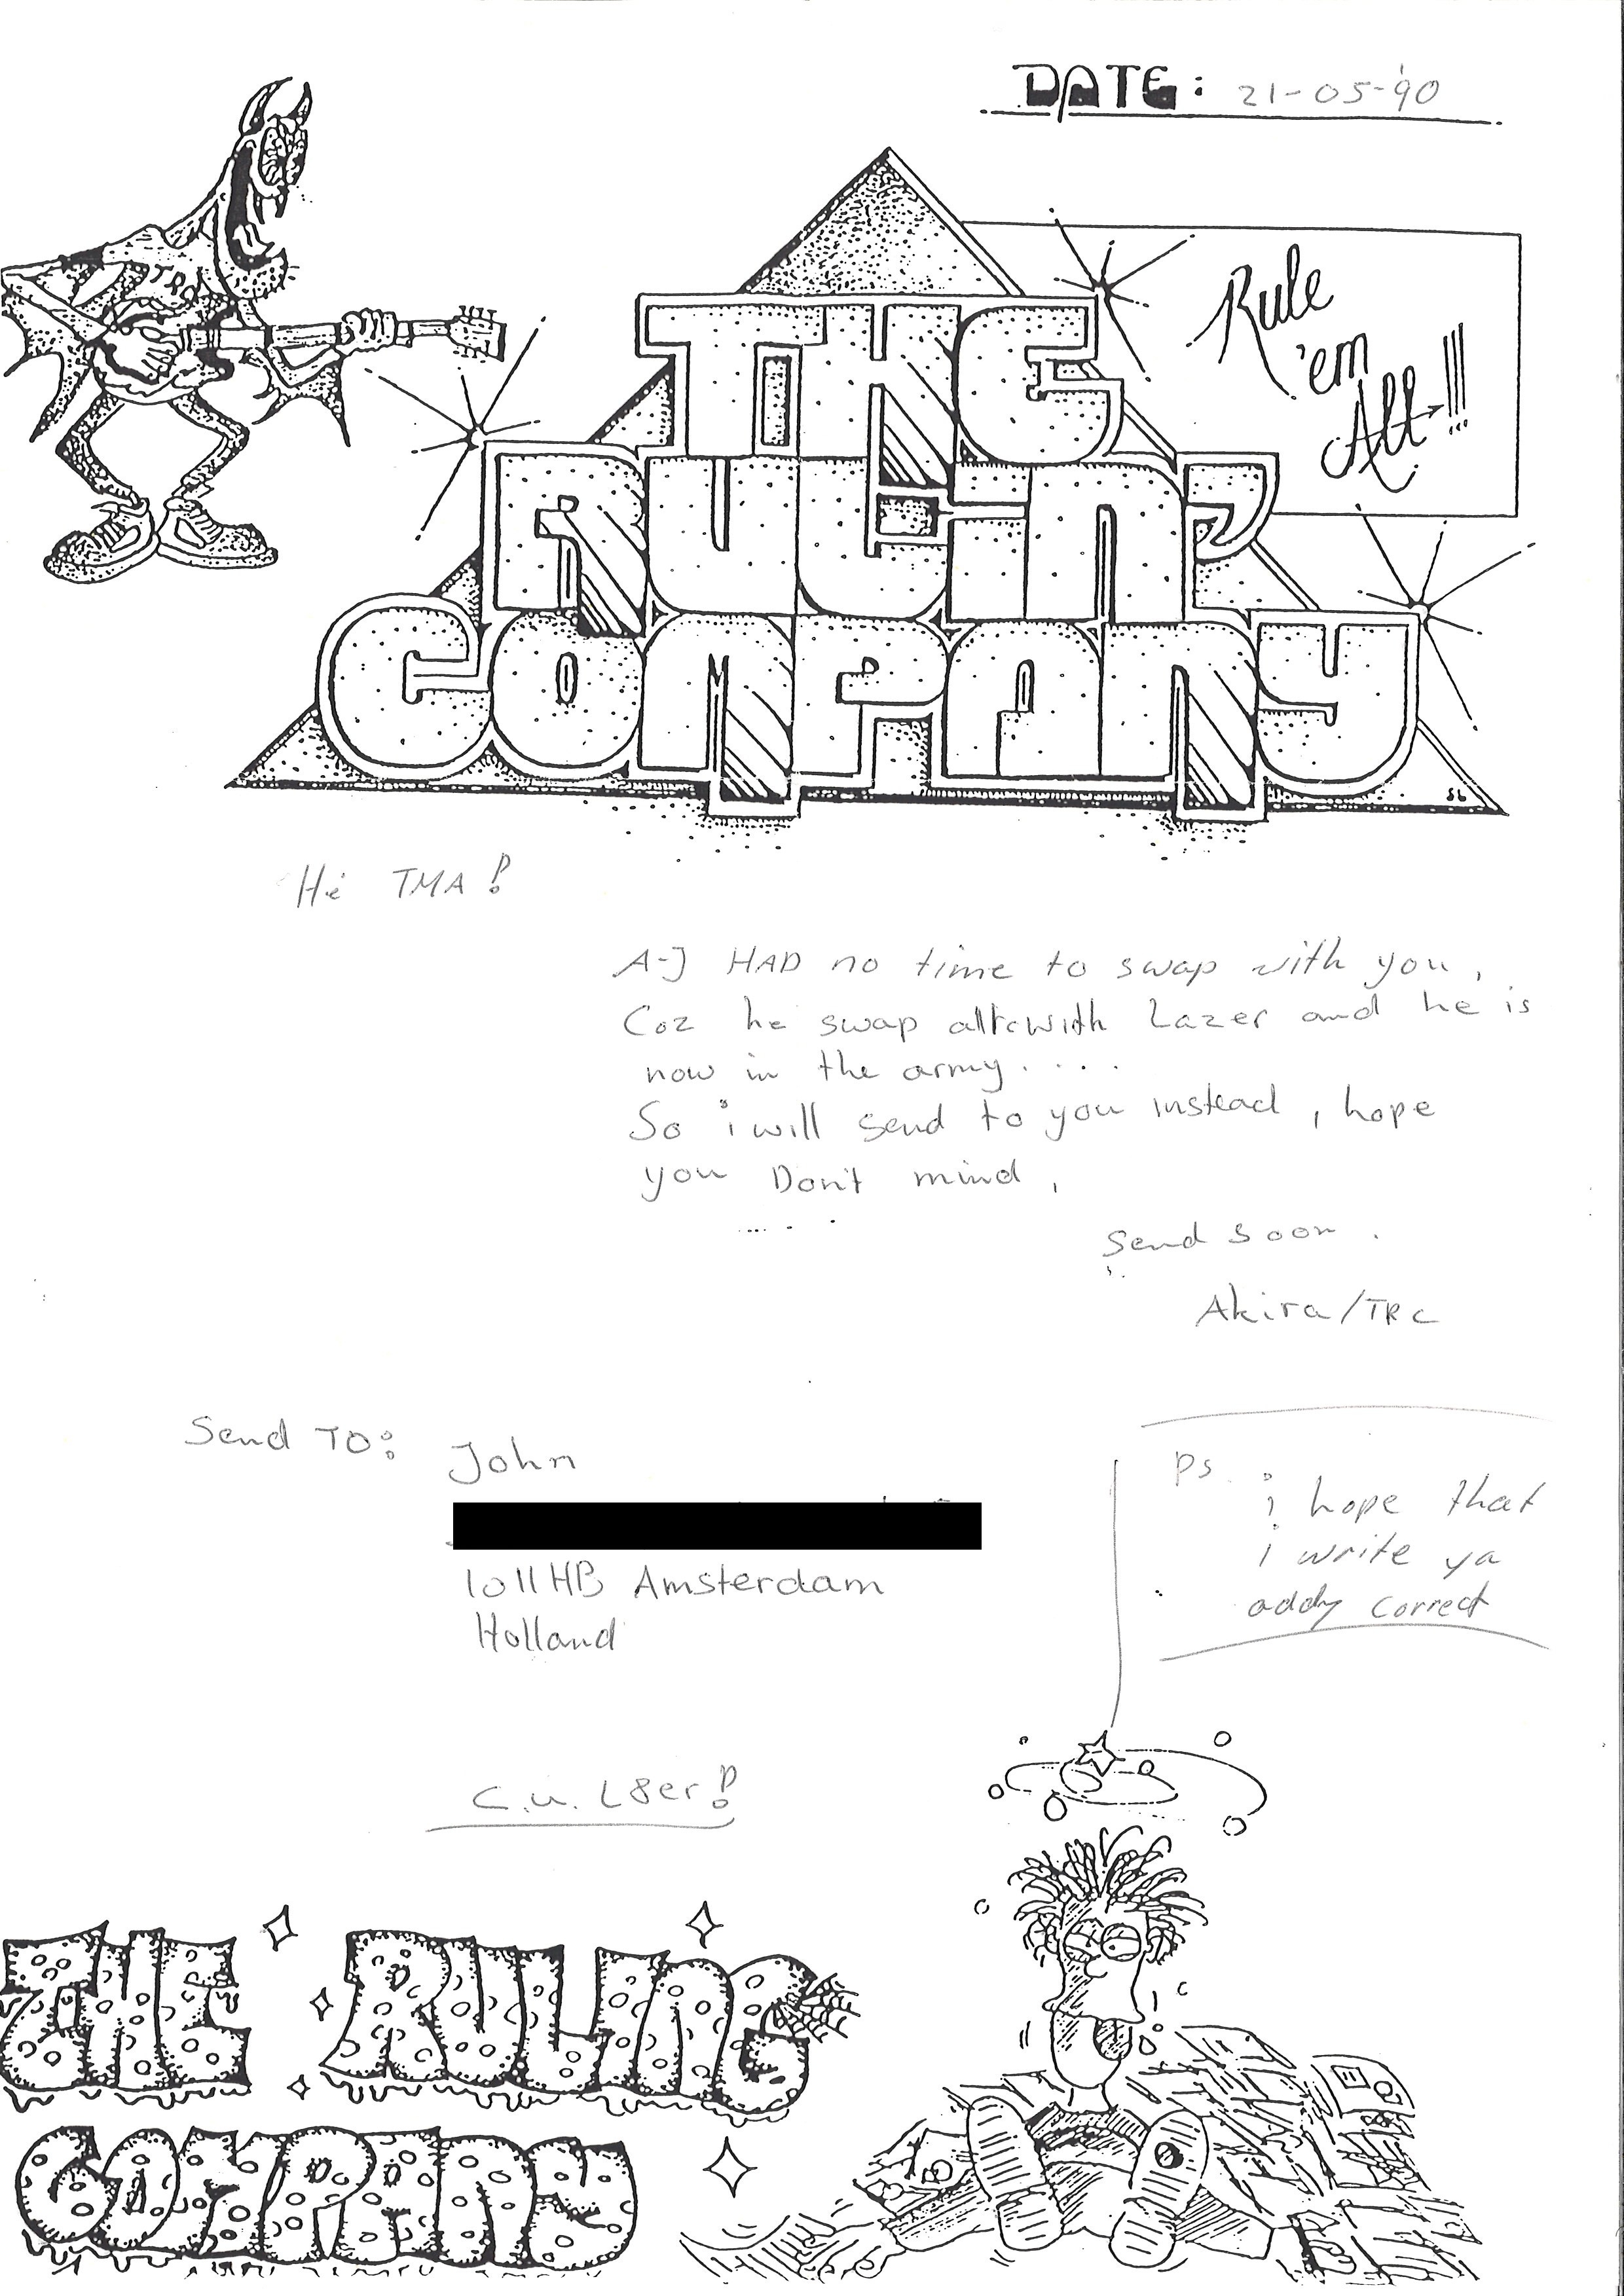 DATE: 21-05-'90
TRC
Rule
'em
All!!!
THE
RULIN'
COMPANY
SL
Hi TMA!
A-J HAD no time to swap with you,
Coz he swap with Lazer and he is
now in the army....
So i will send to you instead, hope
you Don't mind,
.....
Send soon.
Akira/TRC
Send TO:
John
1011HB Amsterdam
Holland
ps.
i hope that
i write ya
addy correct
C.U. L8er!
THE RULING
COMPANY